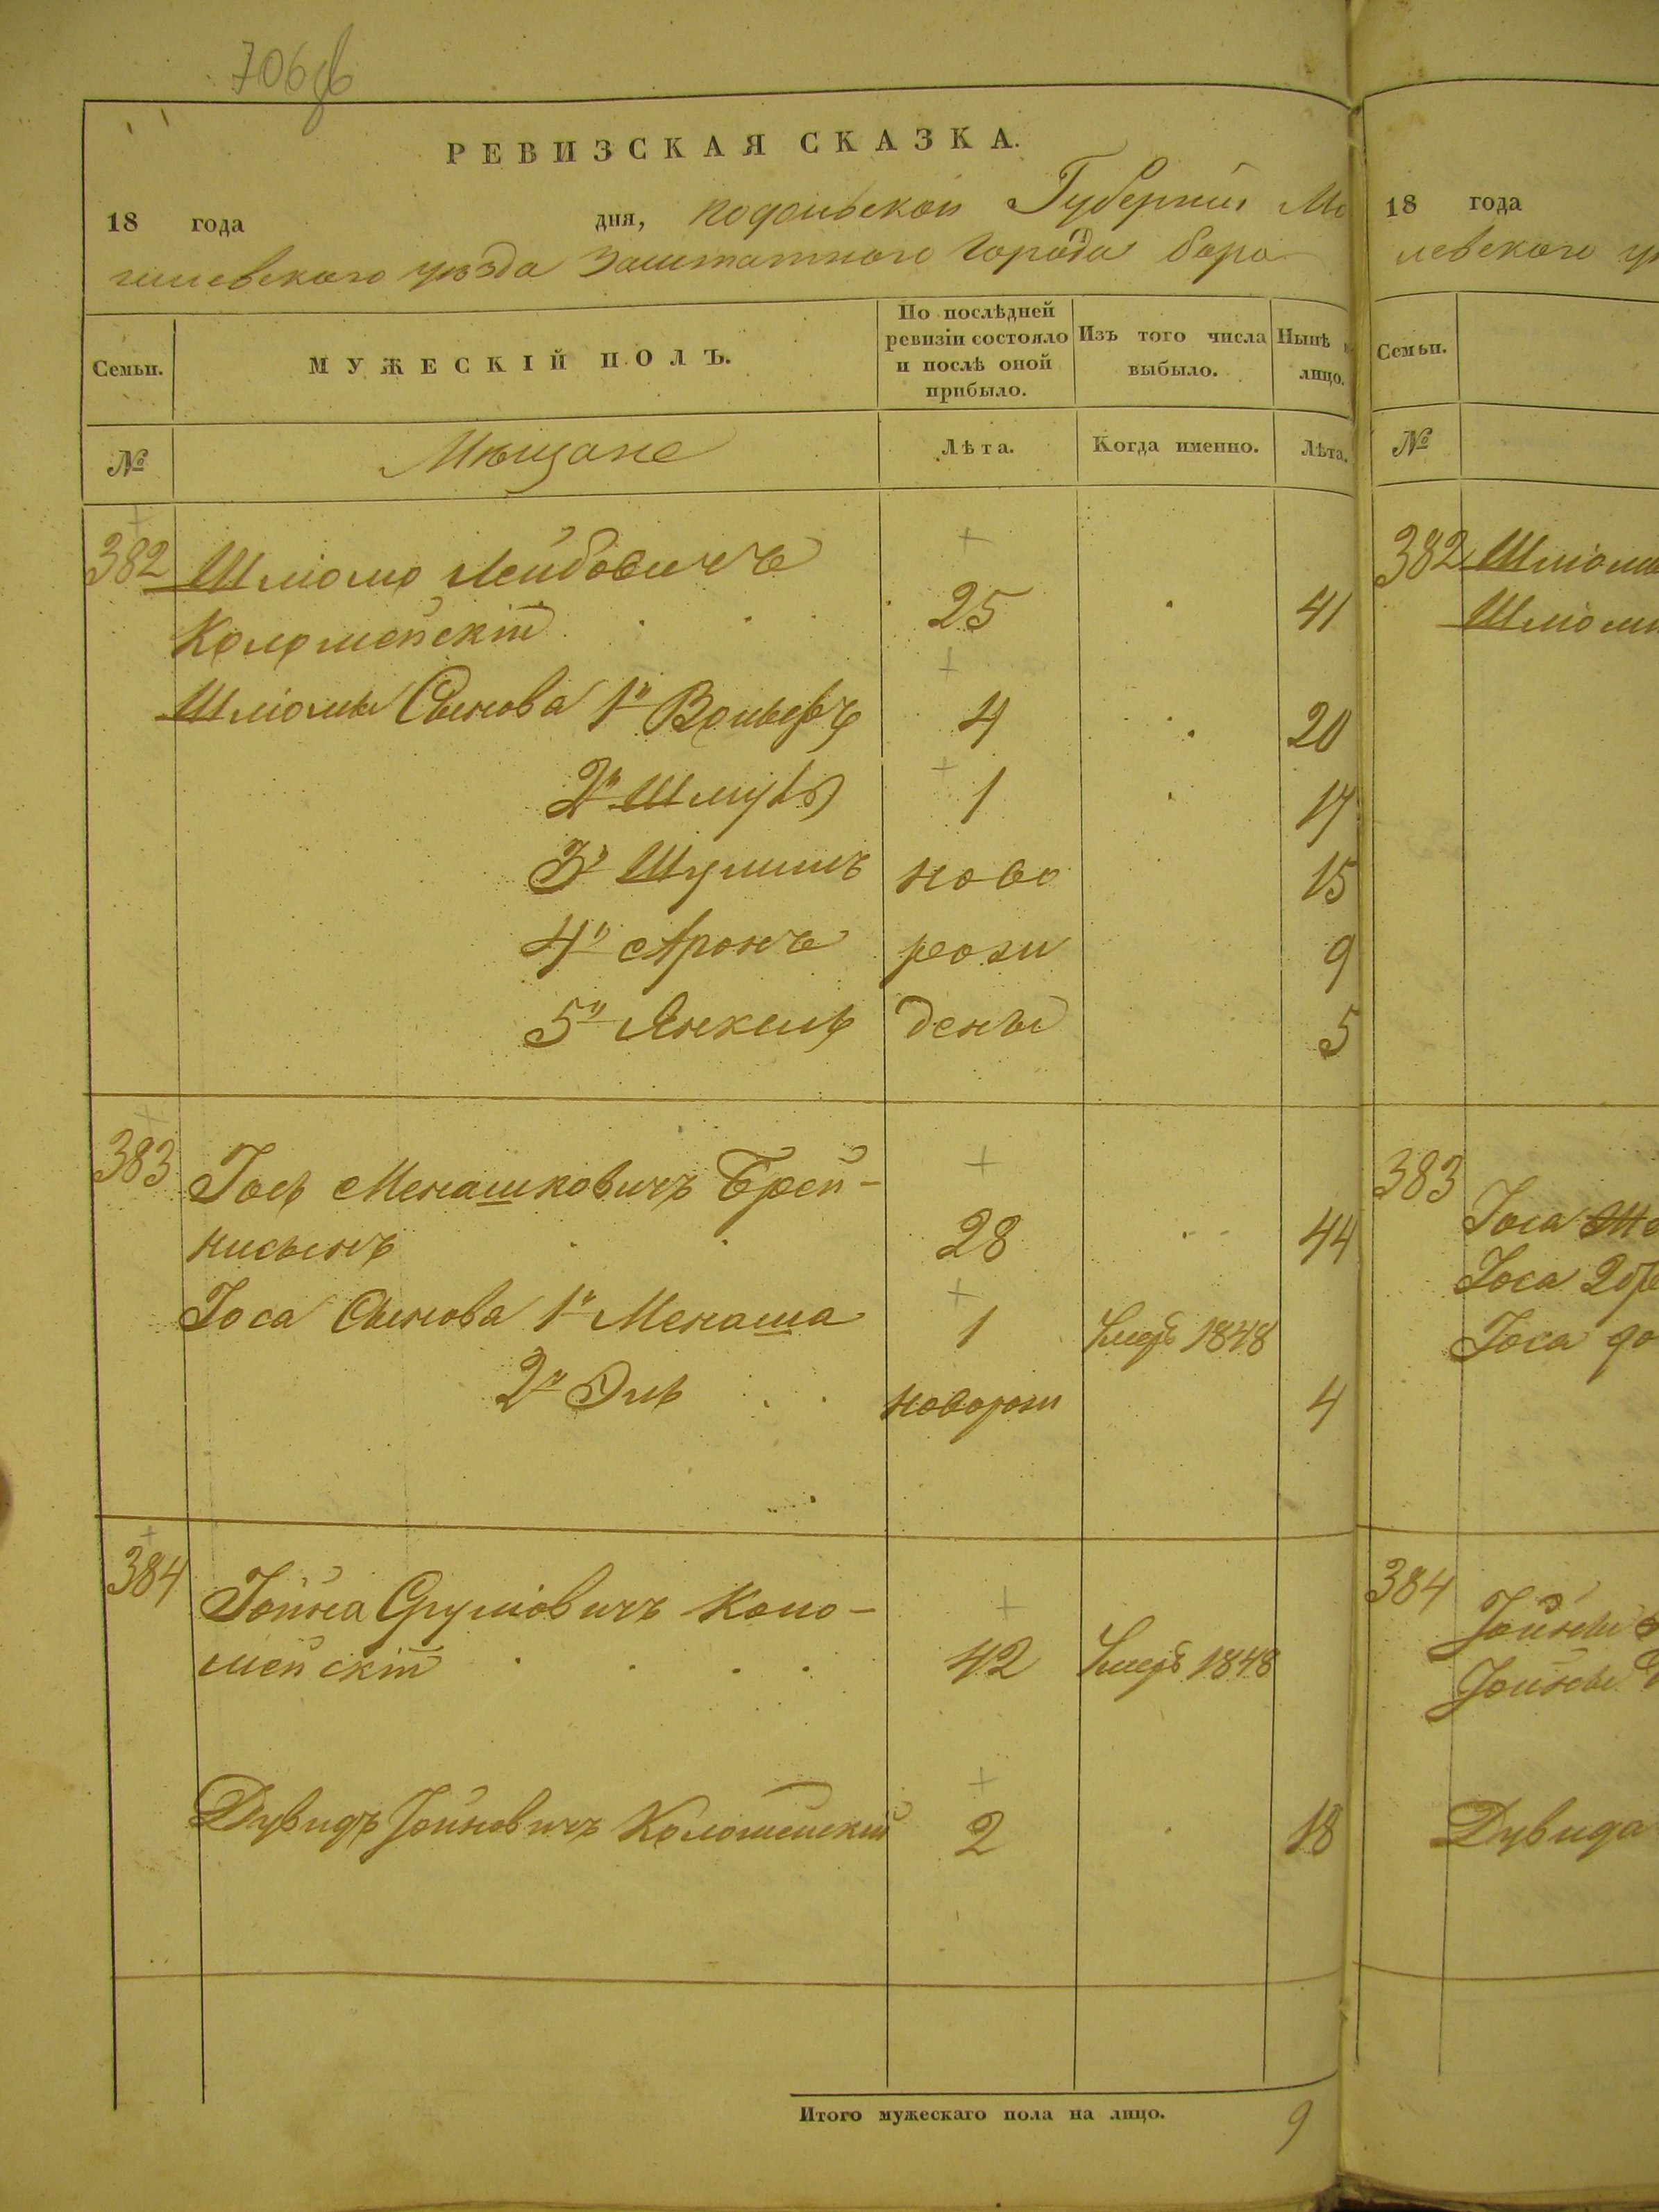 706об
РЕВИЗСКАЯ СКАЗКА.
18 года дня, Подольской Губерніи Мо
гилевского уѣзда Заштатного Города Бара
Семьи.
МУЖЕСКІЙ ПОЛЪ.
По послѣдней ревизіи состояло и послѣ оной прибыло.
Изъ того числа выбыло.
Нынѣ
лицо.
№
Мѣщане
Лѣта.
Когда именно.
Лѣта.
382 Шліома Лейбовичъ
Коломейскій 25 41
Шліомы Сынова 1й Вольфъ 4 20
2й Шмуль 1 17
3й Шулимъ ново 15
4й Аронъ рожи 9
5й Янкель дены 5
383 Іось Менашковичъ Брей-
нисынъ 28 44
Іоса Сынова 1й Менаша 1 Умеръ 1848
2й Эль новорож 4
384 Іойна Сруліовичъ Коло-
мейскій 42 Умеръ 1848
Дувидъ Іойновичъ Коломейский 2 18
Итого мужескаго пола на лицо. 9
18 года
левского
Семьи.
№
382
383 Іоса
Іоса
Іоса
384 Іойны
Іойны
Дувида